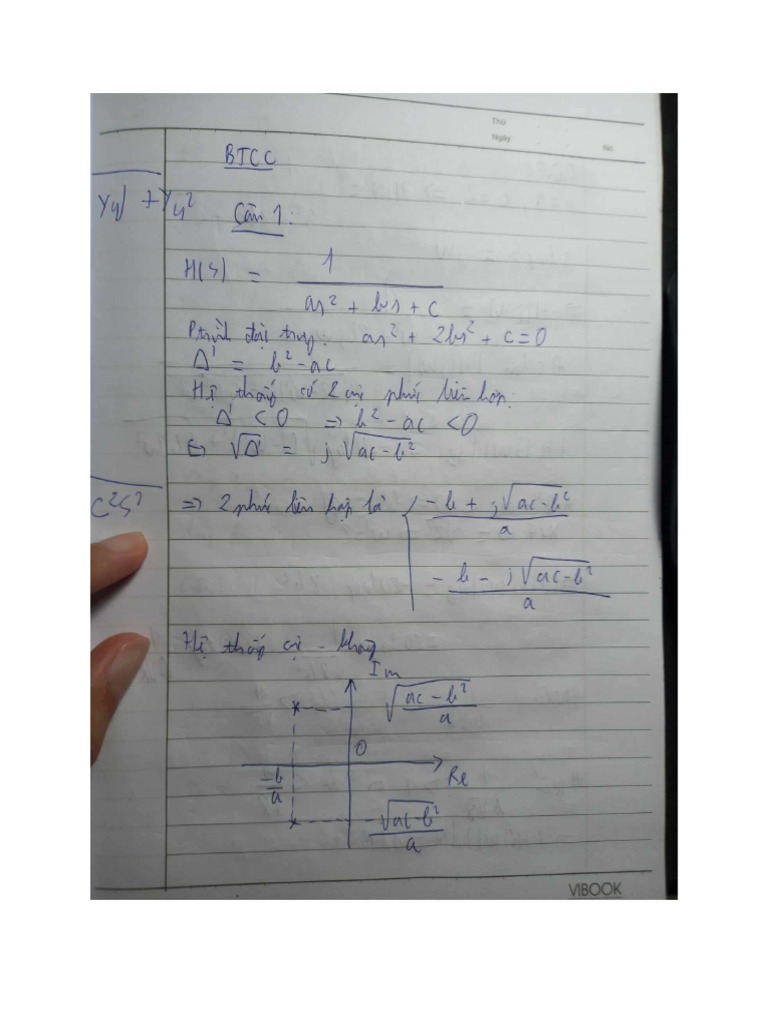 Thứ
Ngày
No
BTCC
Yy + Yy²
Câu 1:
H(s) = 1 / (as² + bs + c)
Ptrình đặc trưng: as² + 2bs² + c = 0
Δ' = b² - ac
Hệ thống có 2 cực phức liên hợp.
Δ' < 0 => b² - ac < 0
⇔ √Δ' = j√(ac - b²)
C²S²
=> 2 phức liên hợp là { (-b + j√(ac - b²)) / a
(-b - j√(ac - b²)) / a
Hệ thống cực - không
Im
√((ac - b²) / a)
O
-b/a
Re
-√(ac - b²) / a
VIBOOK